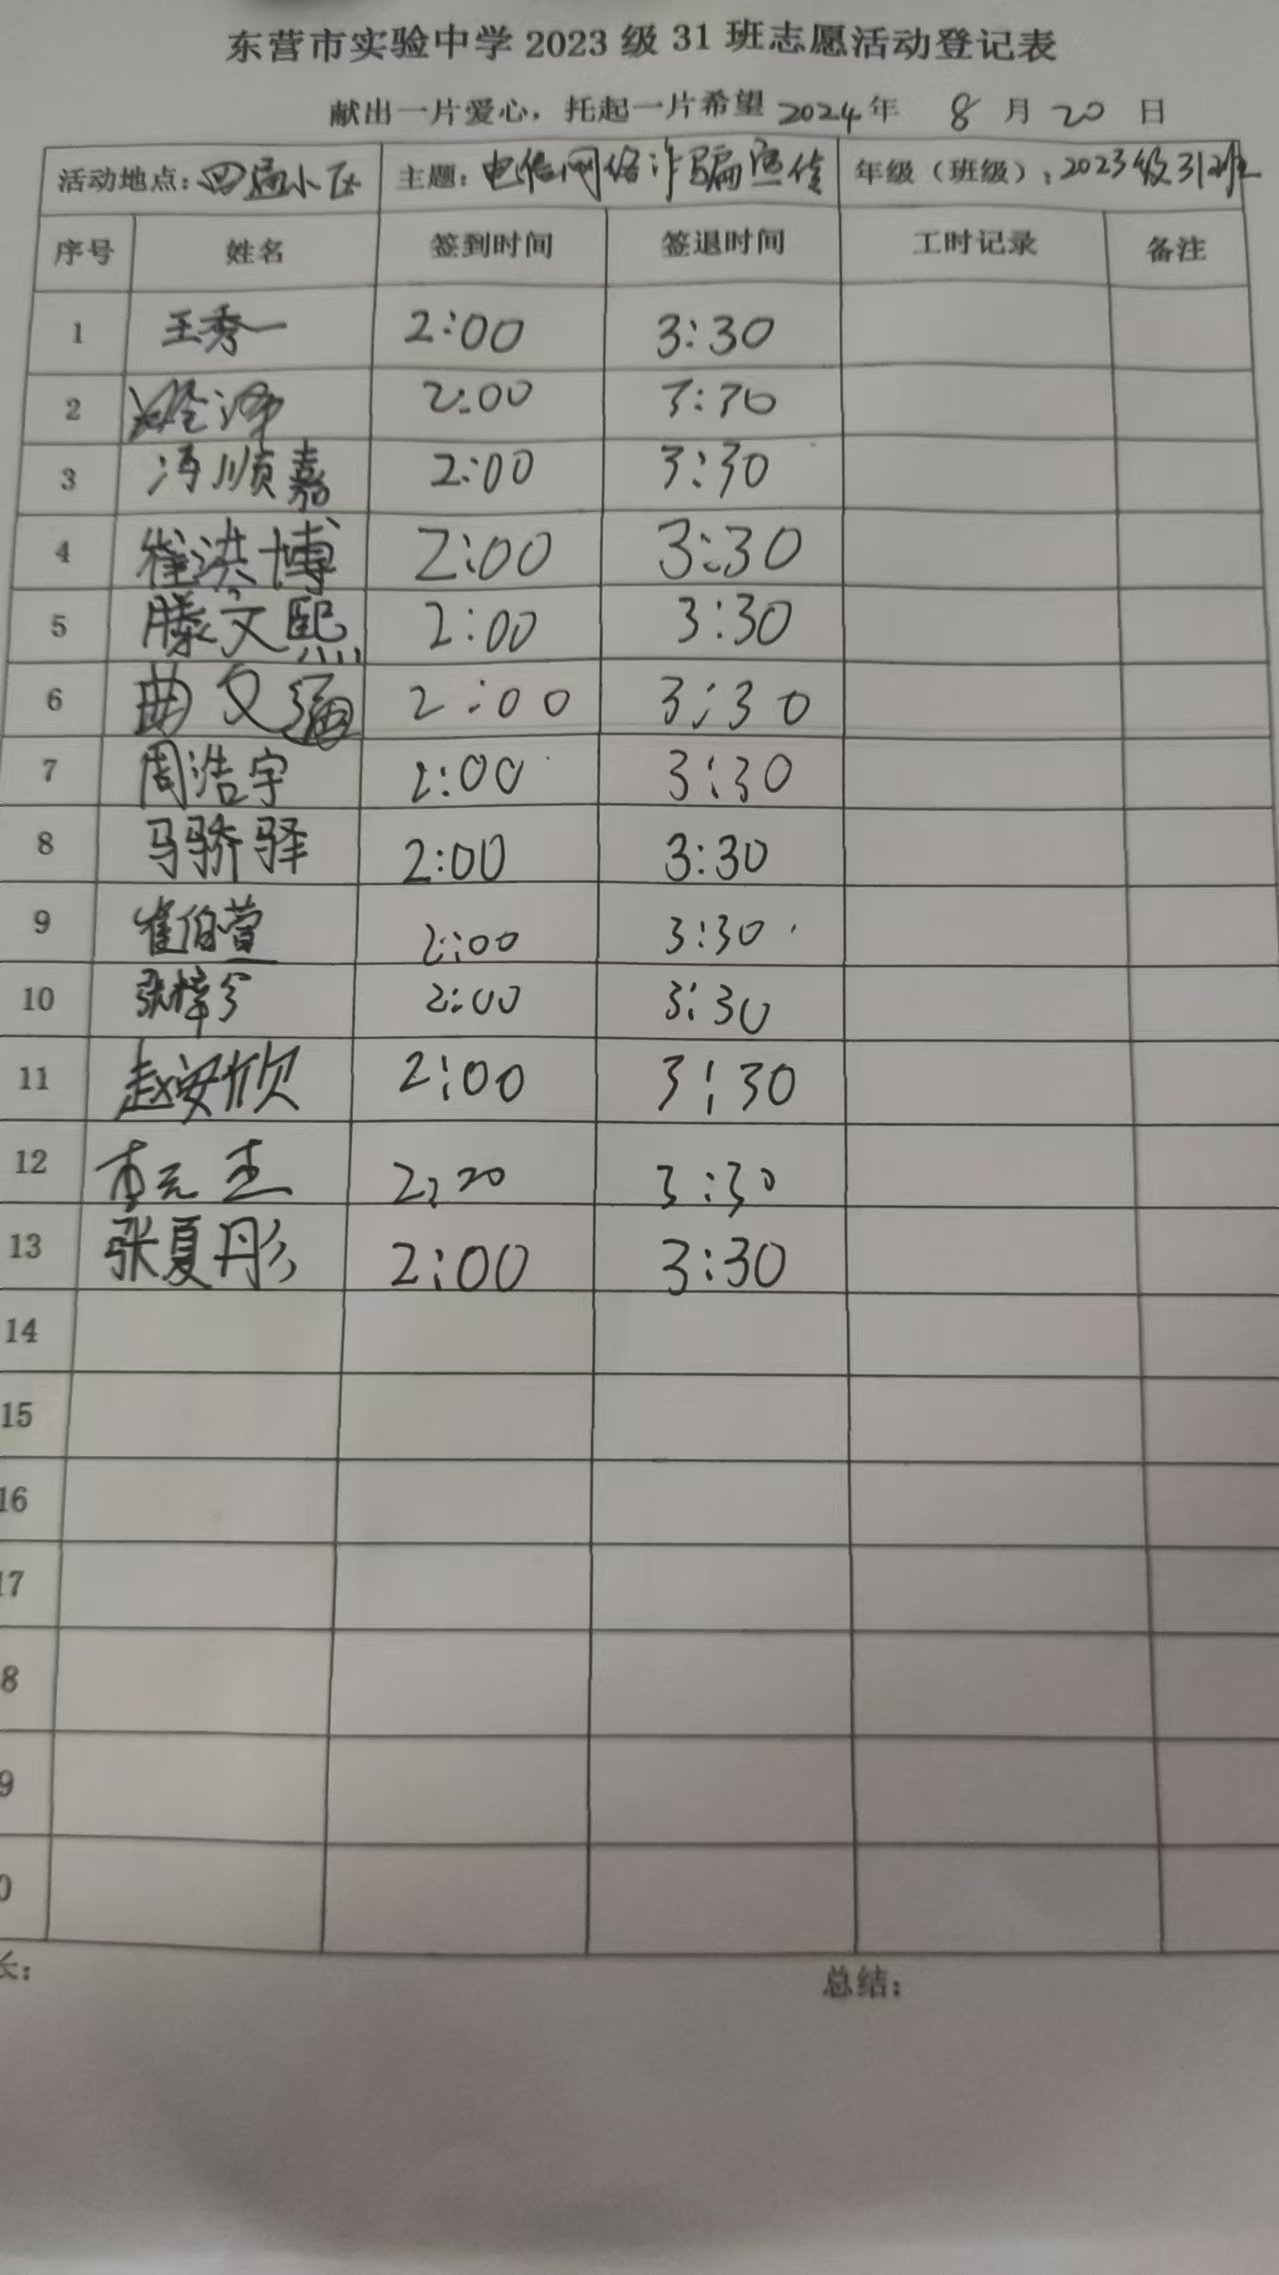 东营市实验中学2023级31班志愿活动登记表
献出一片爱心，托起一片希望 2024年 8月20日
活动地点：四通小区 主题：电信网络诈骗宣传 年级（班级）：2023级31班
序号 姓名 签到时间 签退时间 工时记录 备注
1 王秀一 2:00 3:30
2 2:00 3:30
3 冯顺嘉 2:00 3:30
4 崔洪博 2:00 3:30
5 滕文熙 2:00 3:30
6 曲文涵 2:00 3:30
7 周浩宇 2:00 3:30
8 马骄驿 2:00 3:30
9 崔伯萱 2:00 3:30
10 张梓 2:00 3:30
11 赵安欣 2:00 3:30
12 李元杰 2:20 3:30
13 张夏彤 2:00 3:30
14
15
16
17
8
9
0
长：
总结：